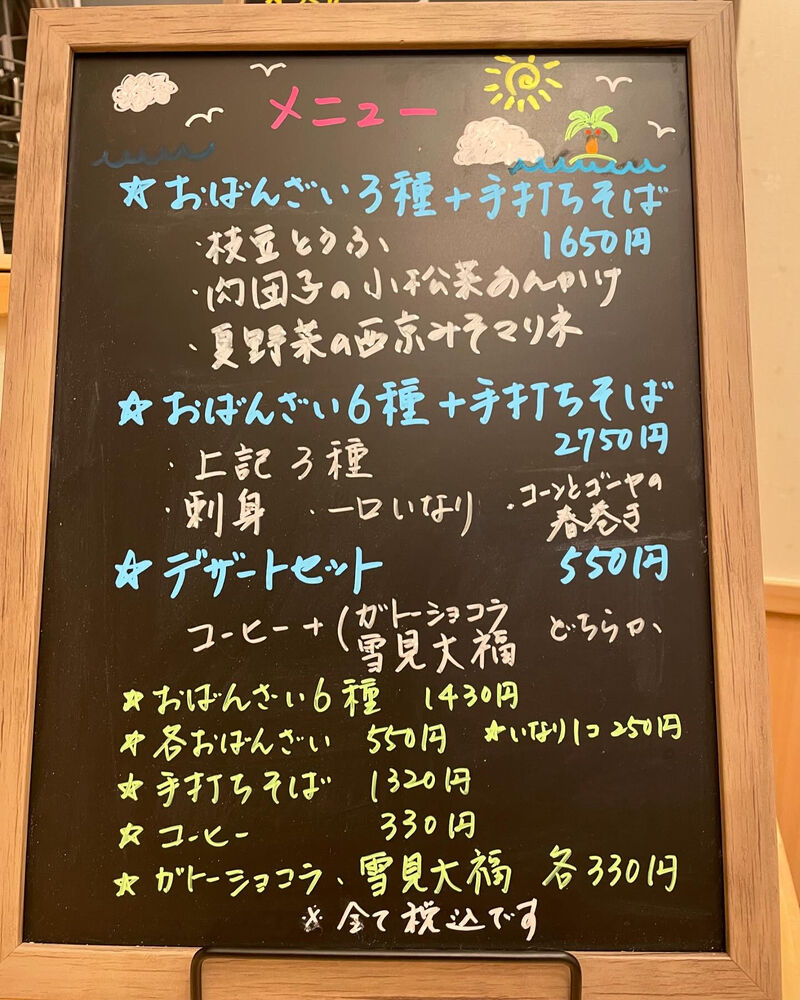 メニュー
☆おばんざい3種+手打ちそば
1650円
・枝豆とうふ
・肉団子の小松菜あんかけ
・夏野菜の西京みそマリネ
☆おばんざい6種+手打ちそば
2750円
・上記3種
・刺身 ・一口いなり ・コーンとゴーヤの
春巻き
☆デザートセット 550円
コーヒー+(ガトーショコラ
雪見大福 どちらか
☆おばんざい6種 1430円
☆各おばんざい 550円 ☆いなり1コ 250円
☆手打ちそば 1320円
☆コーヒー 330円
☆ガトーショコラ、雪見大福 各330円
※全て税込です